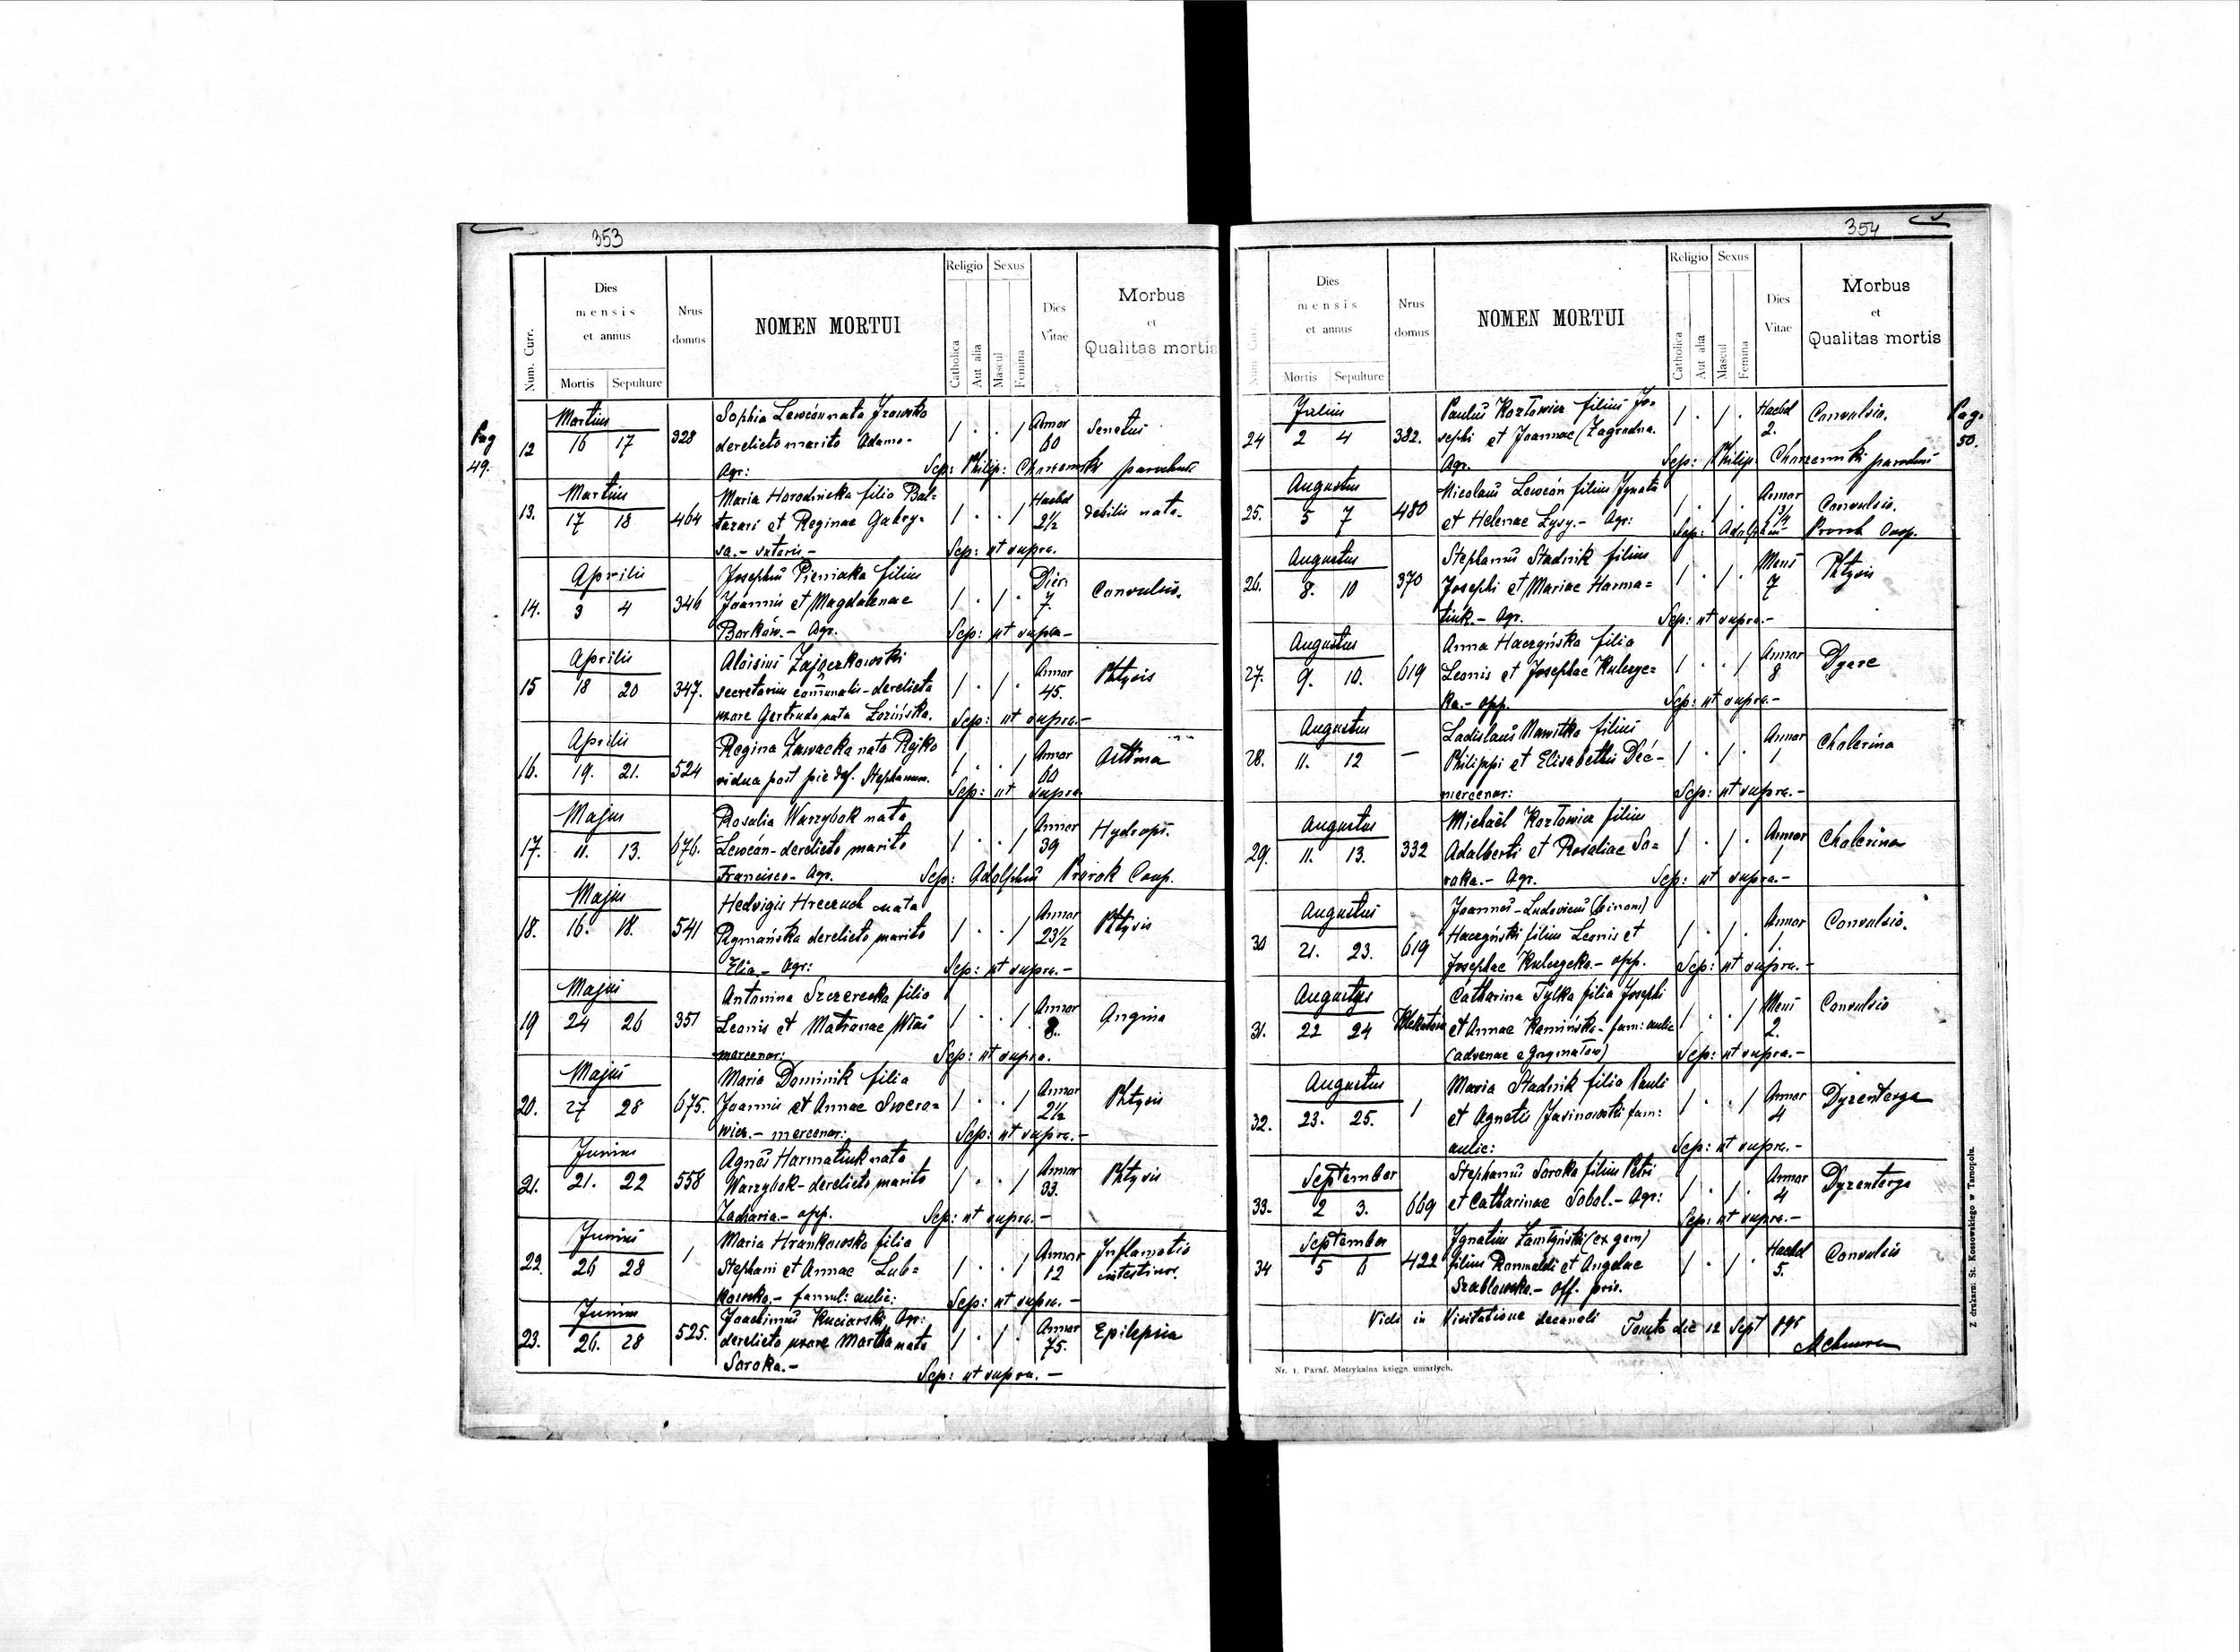 353
Num. Curr.
Dies
mensis
et annus
Mortis
Sepulture
Nrus
domus
NOMEN MORTUI
Religio
Sexus
Catholica
Aut alia
Mascul
Femina
Dies
Vitae
Morbus
et
Qualitas mortis
Pag
49.
Martius
12 16 17 328
Sophia Lewcón nata
derelicto marito Adamo-
Agr:
1 . . 1
Annor
60
Senectus
Sep: Philip: parochus
Martius
13. 17 18 464
Maria Horodnicka filia Bal=
tazari et Reginae Gabry-
sa.- sutoris-
1 . . 1
Hebd
2½
debilis nata-
Sep: ut supra.
Aprilis
14. 3 4 346
Josephus Pieniaka filius
Joannis et Magdalenae
Borków.- Agr.
1 . 1 .
Dier:
7.
Convulsis.
Sep: ut supra-
Aprilis
15 18 20 347.
Aloisius Zajączkowski
secretarius comunalis-derelicta
uxore Gertruda nata Łozińska.
1 . 1 .
Annor
45.
Phtysis
Sep: ut supra.-
Aprilis
16. 19. 21. 524
Regina Zawacka nata Rojko
vidua post pie def. Stephanum.
1 . . 1
Annor
60
Asthma
Sep: ut supra
Majus
17. 11. 13. 676.
Rosalia Warzybok nata
Lewcón-derelicto marito
Francisco- Agr.
1 . . 1
Annor
39
Hydrops.
Sep: Adolphus Prorok Coop.
Majus
18. 16. 18. 541
Hedvigis Hreczuch nata
Rymańska derelicto marito
Elia- Agr:
1 . . 1
Annor
23½
Phtysis
Sep: ut supra.-
Majus
19 24 26 351
Antonina Szczerecka filia
Leonis et Matronae Włas
mercenar:
1 . . 1
Annor
8.
Angina
Sep: ut supra.
Majus
20. 27 28 675.
Maria Dominik filia
Joannis et Annae Swero=
wicz.- mercenar:
1 . . 1
Annor
2½
Phtysis
Sep: ut supra.-
Junius
21. 21. 22 558
Agnes Harmatiuk nata
Warzybok-derelicto marito
Zacharia.- opp.
1 . . 1
Annor
33.
Phtysis
Sep: ut supra.-
Junius
22. 26 28 1
Maria Hrankowska filia
Stephani et Annae Lub=
kowska.- famul: aulic:
1 . . 1
Annor
12
Inflamatio
intestinor.
Sep: ut supra.-
Junius
23. 26. 28 525.
Joachimus Kuciarski Agr:
derelicta uxore Martha nata
Soroka.-
1 . 1 .
Annor
75.
Epilepsia
Sep: ut supra.-
354
Num. Curr.
Dies
mensis
et annus
Mortis
Sepulture
Nrus
domus
NOMEN MORTUI
Religio
Sexus
Catholica
Aut alia
Mascul
Femina
Dies
Vitae
Morbus
et
Qualitas mortis
Pag.
50.
Julius
24 2 4 382.
Paulus Kozłowicz filius Jo=
sephi et Joannae Zagrodna.
Agr.
1 . 1 .
Hebd
2.
Convulsio.
Sep: Philip. parochus
Augustus
25. 5 7 480
Nicolaus Lewcón filius Ignatii
et Helenae Łysy.- Agr:
1 . 1 .
Annor
1 3/4
Convulsio.
Sep: Prorok Coop.
Augustus
26. 8. 10 370
Stephanus Stadnik filius
Josephi et Mariae Harma=
tiuk.- Agr.
1 . 1 .
Mens
7
Phtysis
Sep: ut supra.-
Augustus
27. 9. 10. 619
Anna Haczyńska filia
Leonis et Josephae Kulczyc=
ka.- opp.
1 . . 1
Annor
8
Sep: ut supra.-
Augustus
28. 11. 12 -
Ladislaus Nawitka filius
Philippi et Elisabethis Déc-
mercenar:
1 . 1 .
Annor
1
Cholerina
Sep: ut supra.-
Augustus
29. 11. 13. 332
Michaël Kozłowicz filius
Adalberti et Rosaliae So=
roka.- Agr.
1 . 1 .
Annor
1
Cholerina
Sep: ut supra.-
Augustus
30 21. 23. 619
Joannes-Ludovicus (binom)
Haczyński filius Leonis et
Josephae Kulczycka.- opp.
1 . 1 .
Annor
1
Convulsio.
Sep: ut supra.-
Augustus
31. 22 24
Catharina Tylka filia Josephi
et Annae Kamińska- fam: aulic
(advenae e Grzymałów)
1 . . 1
Mens
2.
Convulsio
Sep: ut supra.-
Augustus
32. 23. 25. 1
Maria Stadnik filia Pauli
et Agnetis Jasinowski fam:
aulic:
1 . . 1
Annor
4
Dyzenterya
Sep: ut supra.-
September
33. 2 3. 669
Stephanus Soroka filius Petri
et Catharinae Sobol.- Agr:
1 . 1 .
Annor
4
Dyzenterya
Sep: ut supra.-
September
34 5 6 422
Ignatius (ex gem)
filius Romualdi et Angelae
Szablowska.- off. priv.
1 . 1 .
Hebd
5.
Convulsis
Vidi in Visitatione decanali
die 12 Sept 895
Nr. 1. Paraf. Metrykalna księga umarłych.
Z drukarni St. Kossowskiego w Tarnopolu.